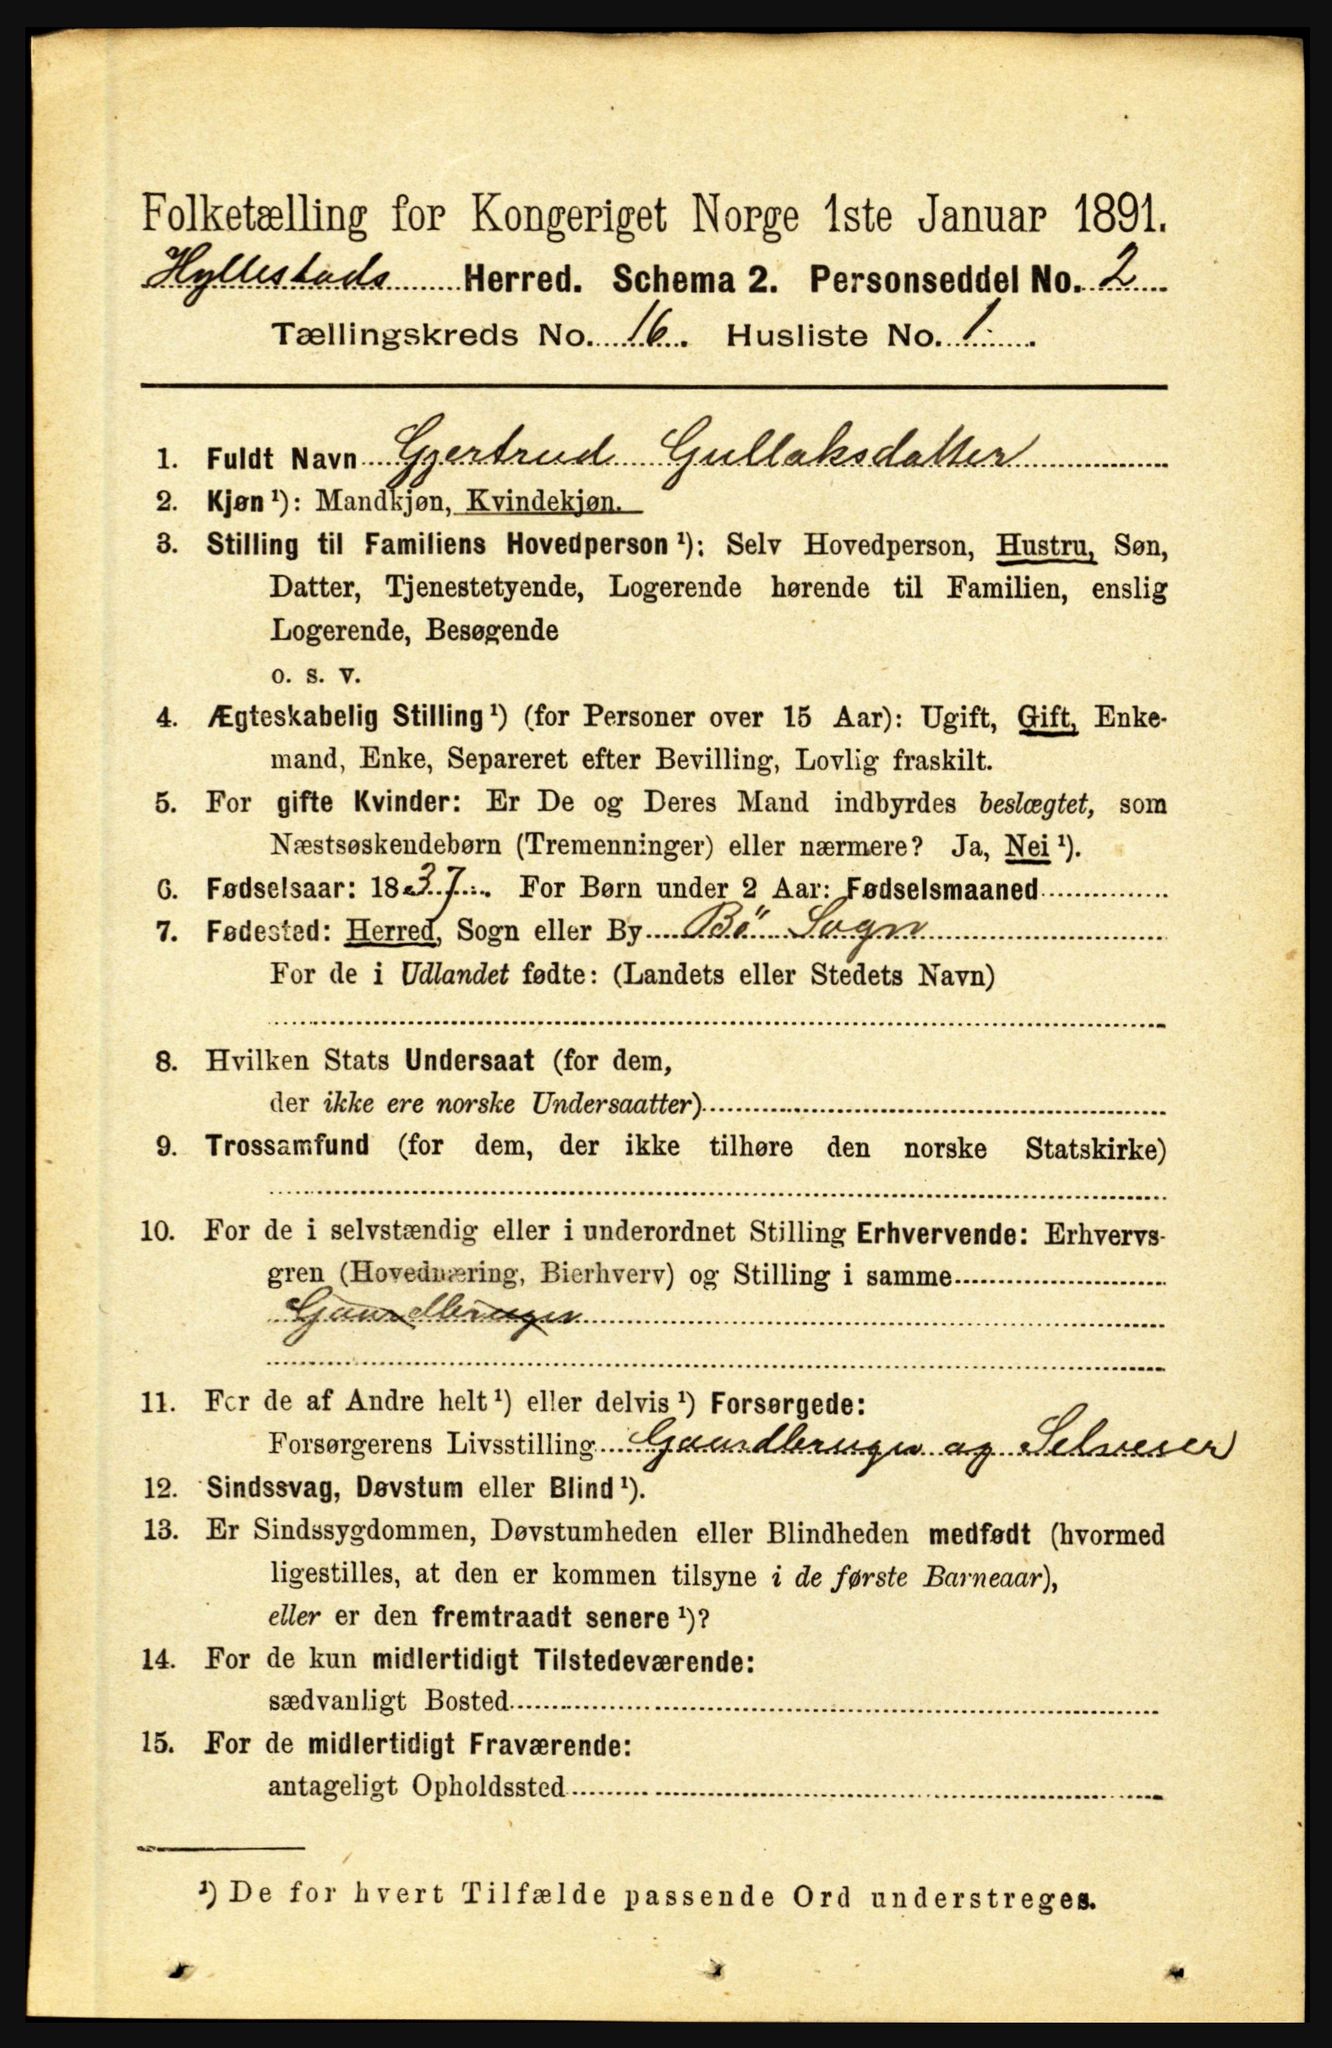 Folketælling for Kongeriget Norge 1ste Januar 1891.
Hyllestads Herred. Schema 2. Personseddel No. 2
Tællingskreds No. 16. Husliste No. 1.
1. Fuldt Navn Gjertrud Gullaksdatter
2. Kjøn¹): Mandkjøn, Kvindekjøn.
3. Stilling til Familiens Hovedperson¹): Selv Hovedperson, Hustru, Søn,
Datter, Tjenestetyende, Logerende hørende til Familien, enslig
Logerende, Besøgende
o. s. v.
4. Ægteskabelig Stilling¹) (for Personer over 15 Aar): Ugift, Gift, Enke-
mand, Enke, Separeret efter Bevilling, Lovlig fraskilt.
5. For gifte Kvinder: Er De og Deres Mand indbyrdes beslægtet, som
Næstsøskendebørn (Tremenninger) eller nærmere? Ja, Nei¹).
6. Fødselsaar: 1837. For Børn under 2 Aar: Fødselsmaaned
7. Fødested: Herred, Sogn eller By Bö Sogn
For de i Udlandet fødte: (Landets eller Stedets Navn)
8. Hvilken Stats Undersaat (for dem,
der ikke ere norske Undersaatter)
9. Trossamfund (for dem, der ikke tilhøre den norske Statskirke)
10. For de i selvstændig eller i underordnet Stilling Erhvervende: Erhvervs-
gren (Hovednæring, Bierhverv) og Stilling i samme
Gaardbruger
11. For de af Andre helt¹) eller delvis¹) Forsørgede:
Forsørgerens Livsstilling Gaardbruger og Selveier
12. Sindssvag, Døvstum eller Blind¹).
13. Er Sindssygdommen, Døvstumheden eller Blindheden medfødt (hvormed
ligestilles, at den er kommen tilsyne i de første Barneaar),
eller er den fremtraadt senere¹)?
14. For de kun midlertidigt Tilstedeværende:
sædvanligt Bosted
15. For de midlertidigt Fraværende:
antageligt Opholdssted
¹) De for hvert Tilfælde passende Ord understreges.